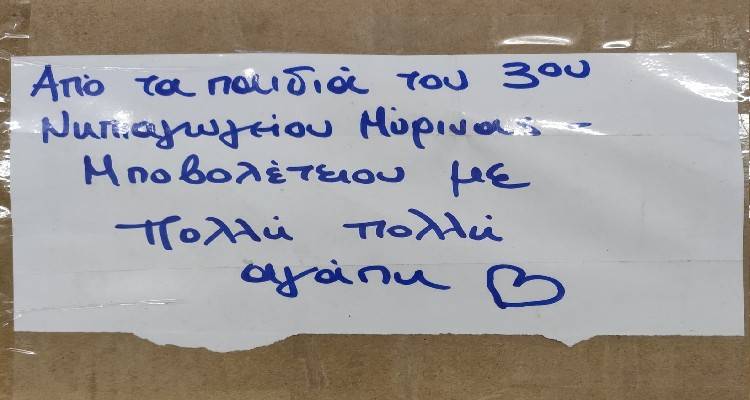 Από τα παιδιά του 3ου
Νηπιαγωγείου Μύρινας -
Μποβολέτειου με
πολλή πολλή
αγάπη